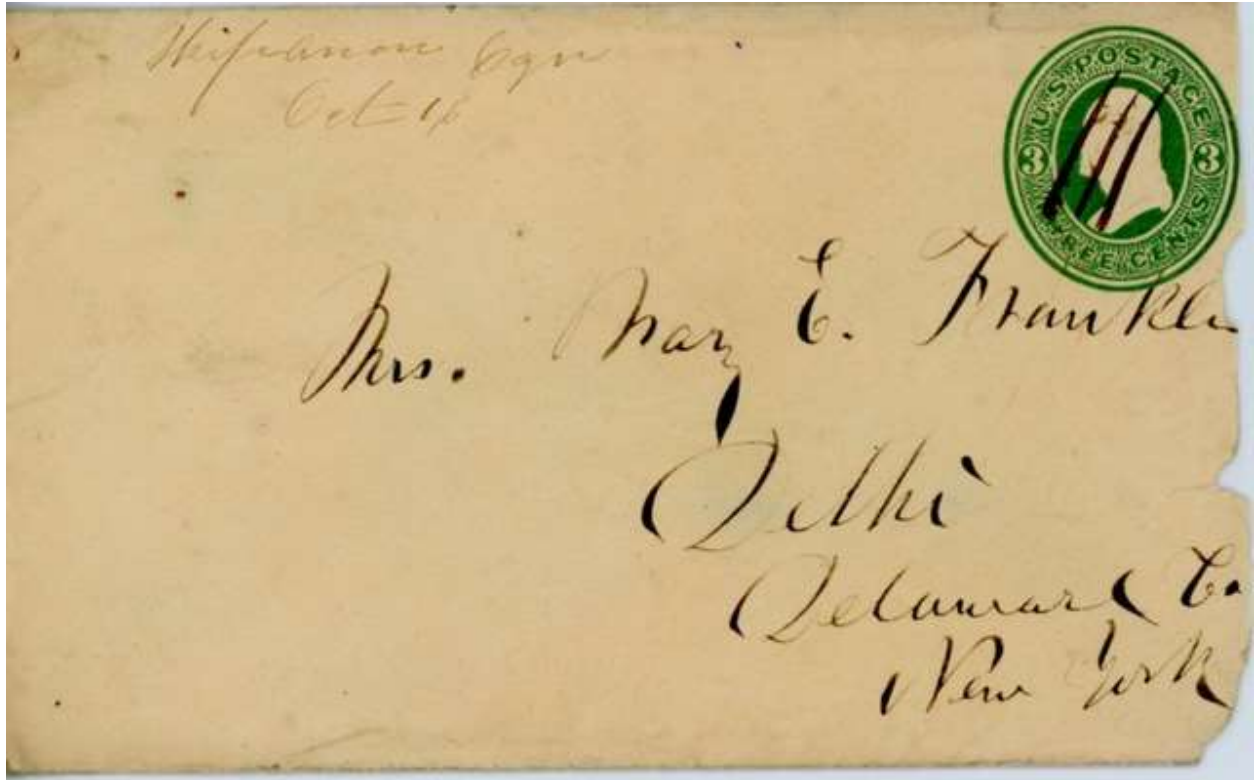 Skipanon Ogn
Oct
U.S. POSTAGE
3 3
THREE CENTS
Mrs. Mary E. Franklin
Delhi
Delaware Co.
New York